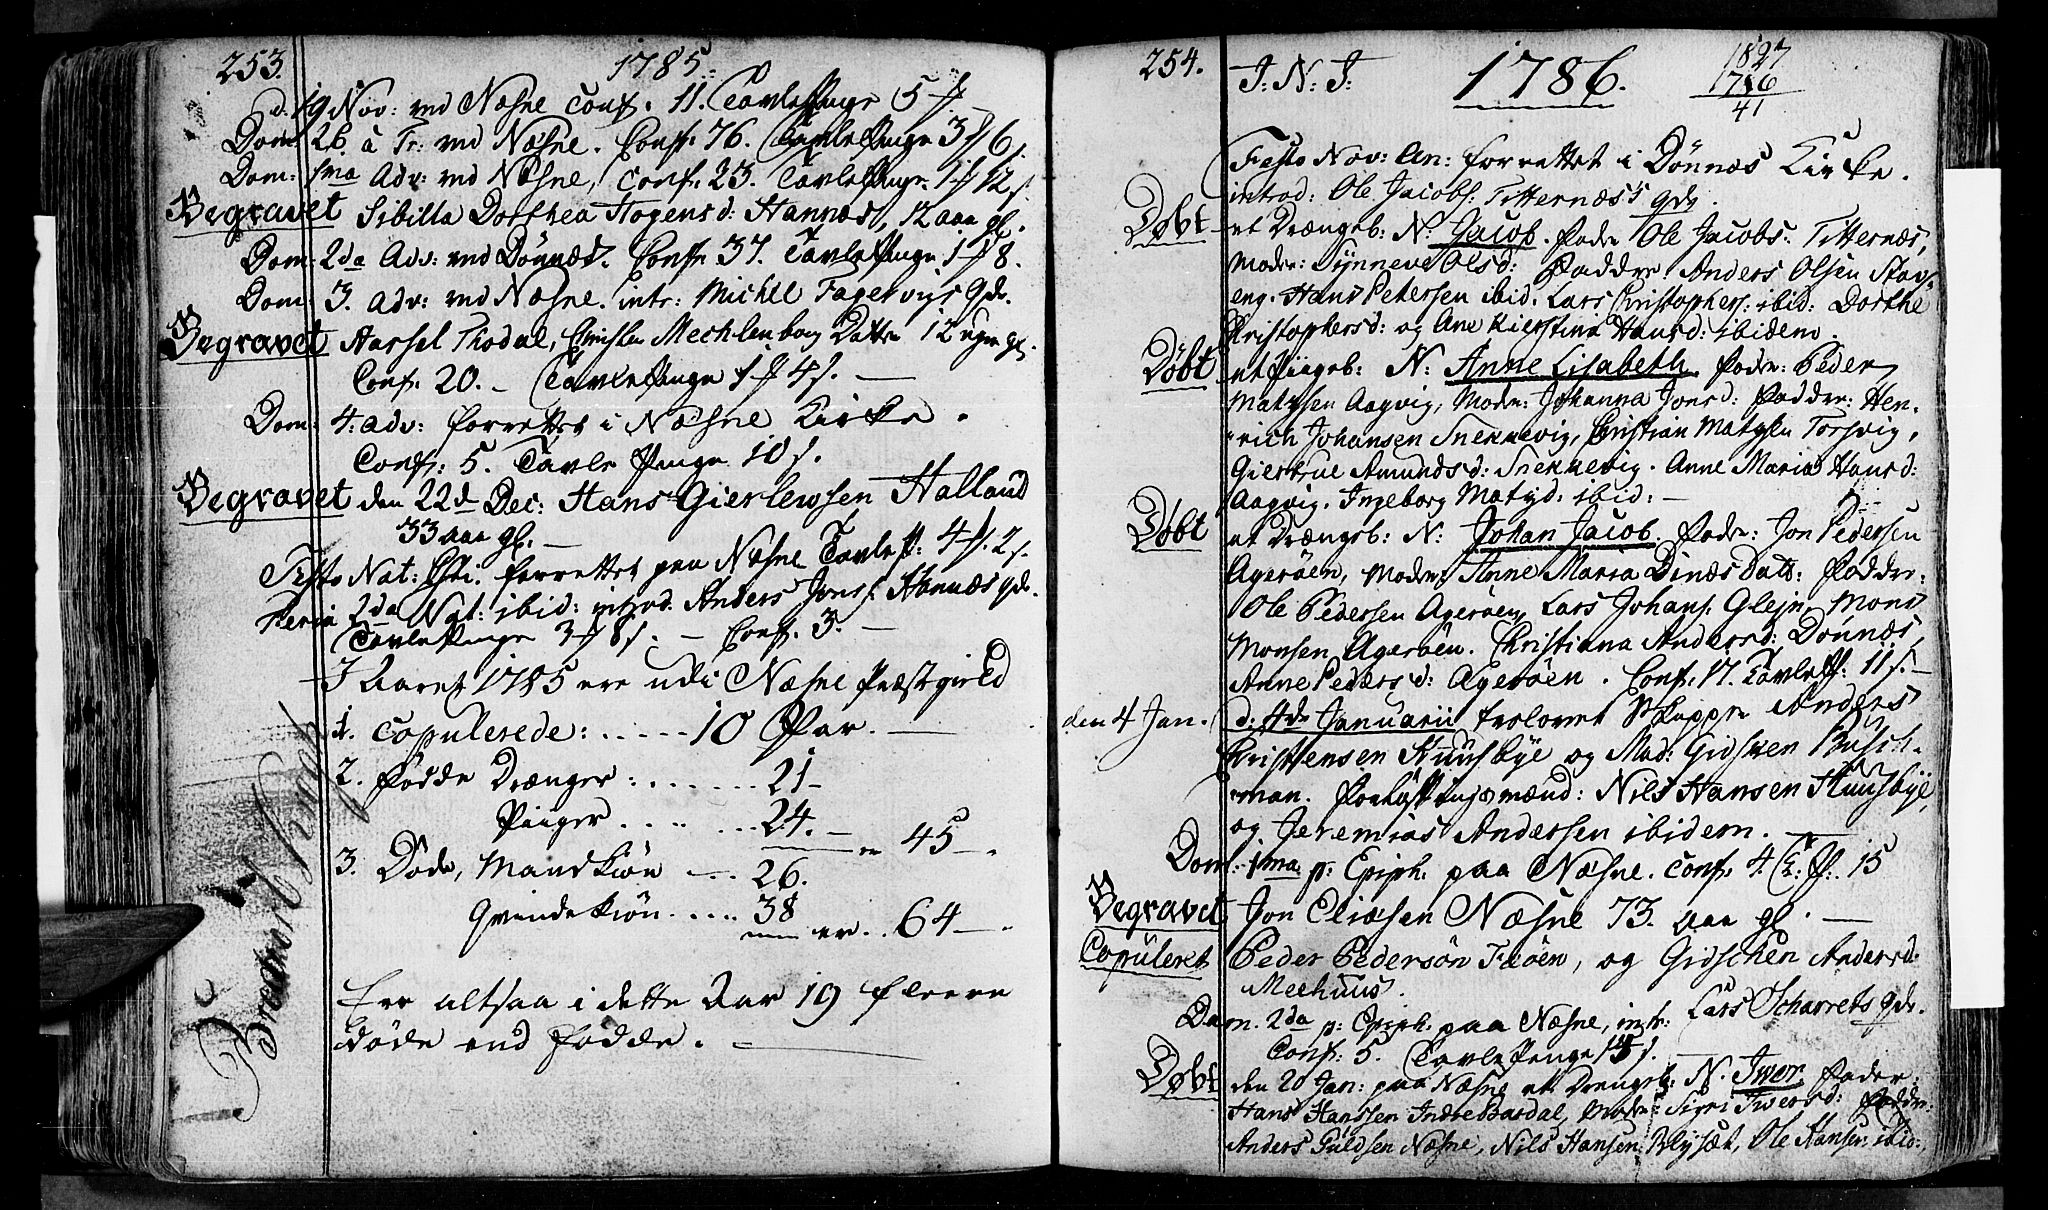 253. 1785.
d. 19 Nov: ved Næsne Conf. 11. Tavle Penge 5
Dom: 26. à Tr: ved Næsne. Conf. 76. Tavle Penge 3 6.
Dom: 1ma Adv: ved Næsne, Conf. 23. Tavle Penge 1 12 s.
Begravet Sibilla Dorthea Hagensd: Hannæs, 12 aar gl.
Dom: 2da Adv: ved Dönnæs. Conf. 37. Tavle Penge 1 8.
Dom: 3. Adv: ved Næsne. intr: Michel Fagervigs qde.
Begravet Aassel Thodal, Christen Mechlenborg Datter 12 uger gl.
Conf: 20. – Tavle Penge 1 4 s. –
Dom: 4. adv: forrettet i Næsne Kirke.
Conf: 5. Tavle Penge 10 s.
Begravet den 22d Dec: Hans Gierlewsen Halland
33 aar gl. –
Festo Nat: Chr. forrettet paa Næsne Tavle P: 4 2 s.
Feria 2da Nat: ibid: introd. Anders Jons. Hannæs qde.
Tavle Penge 3 8 s. – Conf. 3. –
I Aaret 1785 ere udi Næsne Præstegield
1. Copulerede: ..... 10 Par. –
2. Födde Drænger: ....... 21 –
Piiger ....... 24. – er 45 –
3. Döde, Mandkiön – .. 26.
Qvindekiön .... 38 er .. 64 –
Er altsaa i dette Aar 19 fleere
döde end fødde. –
254. J. N. J. 1786. 1827
1786
41
Festo Nov: An: forrettet i Dönnæs Kirke.
introd: Ole Jacobs: Titternæs's qde.
Døbt et Drængeb: N: Jacob. Fader Ole Jacobs: Titternæs,
Moder: Synneve Olsd: Faddre Anders Olsen Stav-
eng. Hans Petersen ibid. Lars Christophers: ibid: Dorthe
Christophersd: og Ane Kierstina Hansd: ibidem.
Døbt et Piigeb: N: Anne Lisabeth. Fader: Peder
Matysen Aagvig, Moder: Johanna Jonsd: Faddre: Hen-
rich Johansen Snekkevig, Christian Matysen Torsvig,
Giertrue Amundsd: Snekkevig. Anne Maria Hansd:
Aagvig. Ingeborg Matysd: ibid: –
Døbt et Drængeb: N: Johan Jacob. Fader: Jon Pedersen
Ageröen, Moder: Anne Maria Dinæs Datt: Faddre:
Ole Pedersen Ageröen, Lars Johans. Glejn, Mons
Monsen Ageröen. Christiana Andersd: Dönnæs,
Anne Pedersd: Ageröen. Conf: 17. Tavle P: 11 s. –
den 4 Jan. d: 4de Januarii trolovet Skipper Anders
Christensen Huusbye og Mad: Gidsken Busch-
man. Forløftningsmænd: Nils Hansen Huusbye,
og Jeremias Andersen ibidem.
Dom: 1ma p: Epiph. paa Næsne. Conf. 4. T. P. 15
Begravet Jon Eliæsen Næsne 73. aar gl. –
Copuleret Peder Pedersön Fiöen, og Gidschen Andersd:
Meehuus.
Dom. 2da p: Epiph. paa Næsne, intr: Lars Scharrets qde.
Conf. 5. Tavle Penge
Døbt den 20 Jan: paa Næsne et Drængeb: N. Iwer Fader:
Hans Hanssen Indre Bardal, Moder: Sigri Iwersd: Faddre:
Anders Guldsen Næsne, Nils Hansen Blysæt, Ole Hansen ibid:,